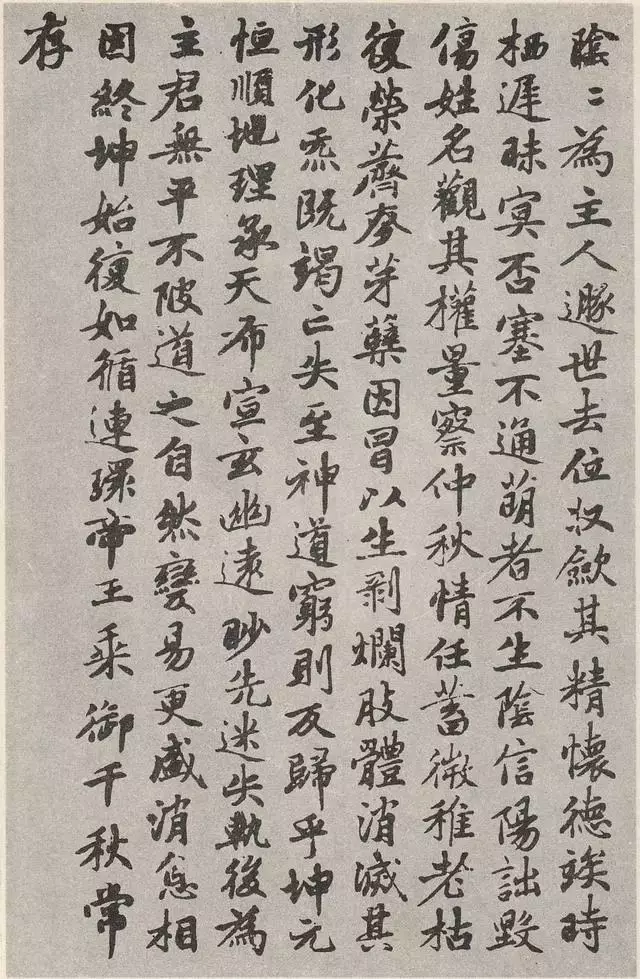 陰〻為主人遯世去位收斂其精懷德俟時
栖遲昧冥否塞不通萌者不生陰信陽詘毀
傷姓名觀其權量察仲秋情任蓄微稚老枯
復榮薺麥芽蘖因冒以生剥爛肢體消滅其
形化炁既竭亡失至神道窮則反歸乎坤元
恒順地理承天布宣玄幽遠眇先迷失軌後為
主君無平不陂道之自然變易更盛消息相
因終坤始復如循連環帝王乘御千秋常
存